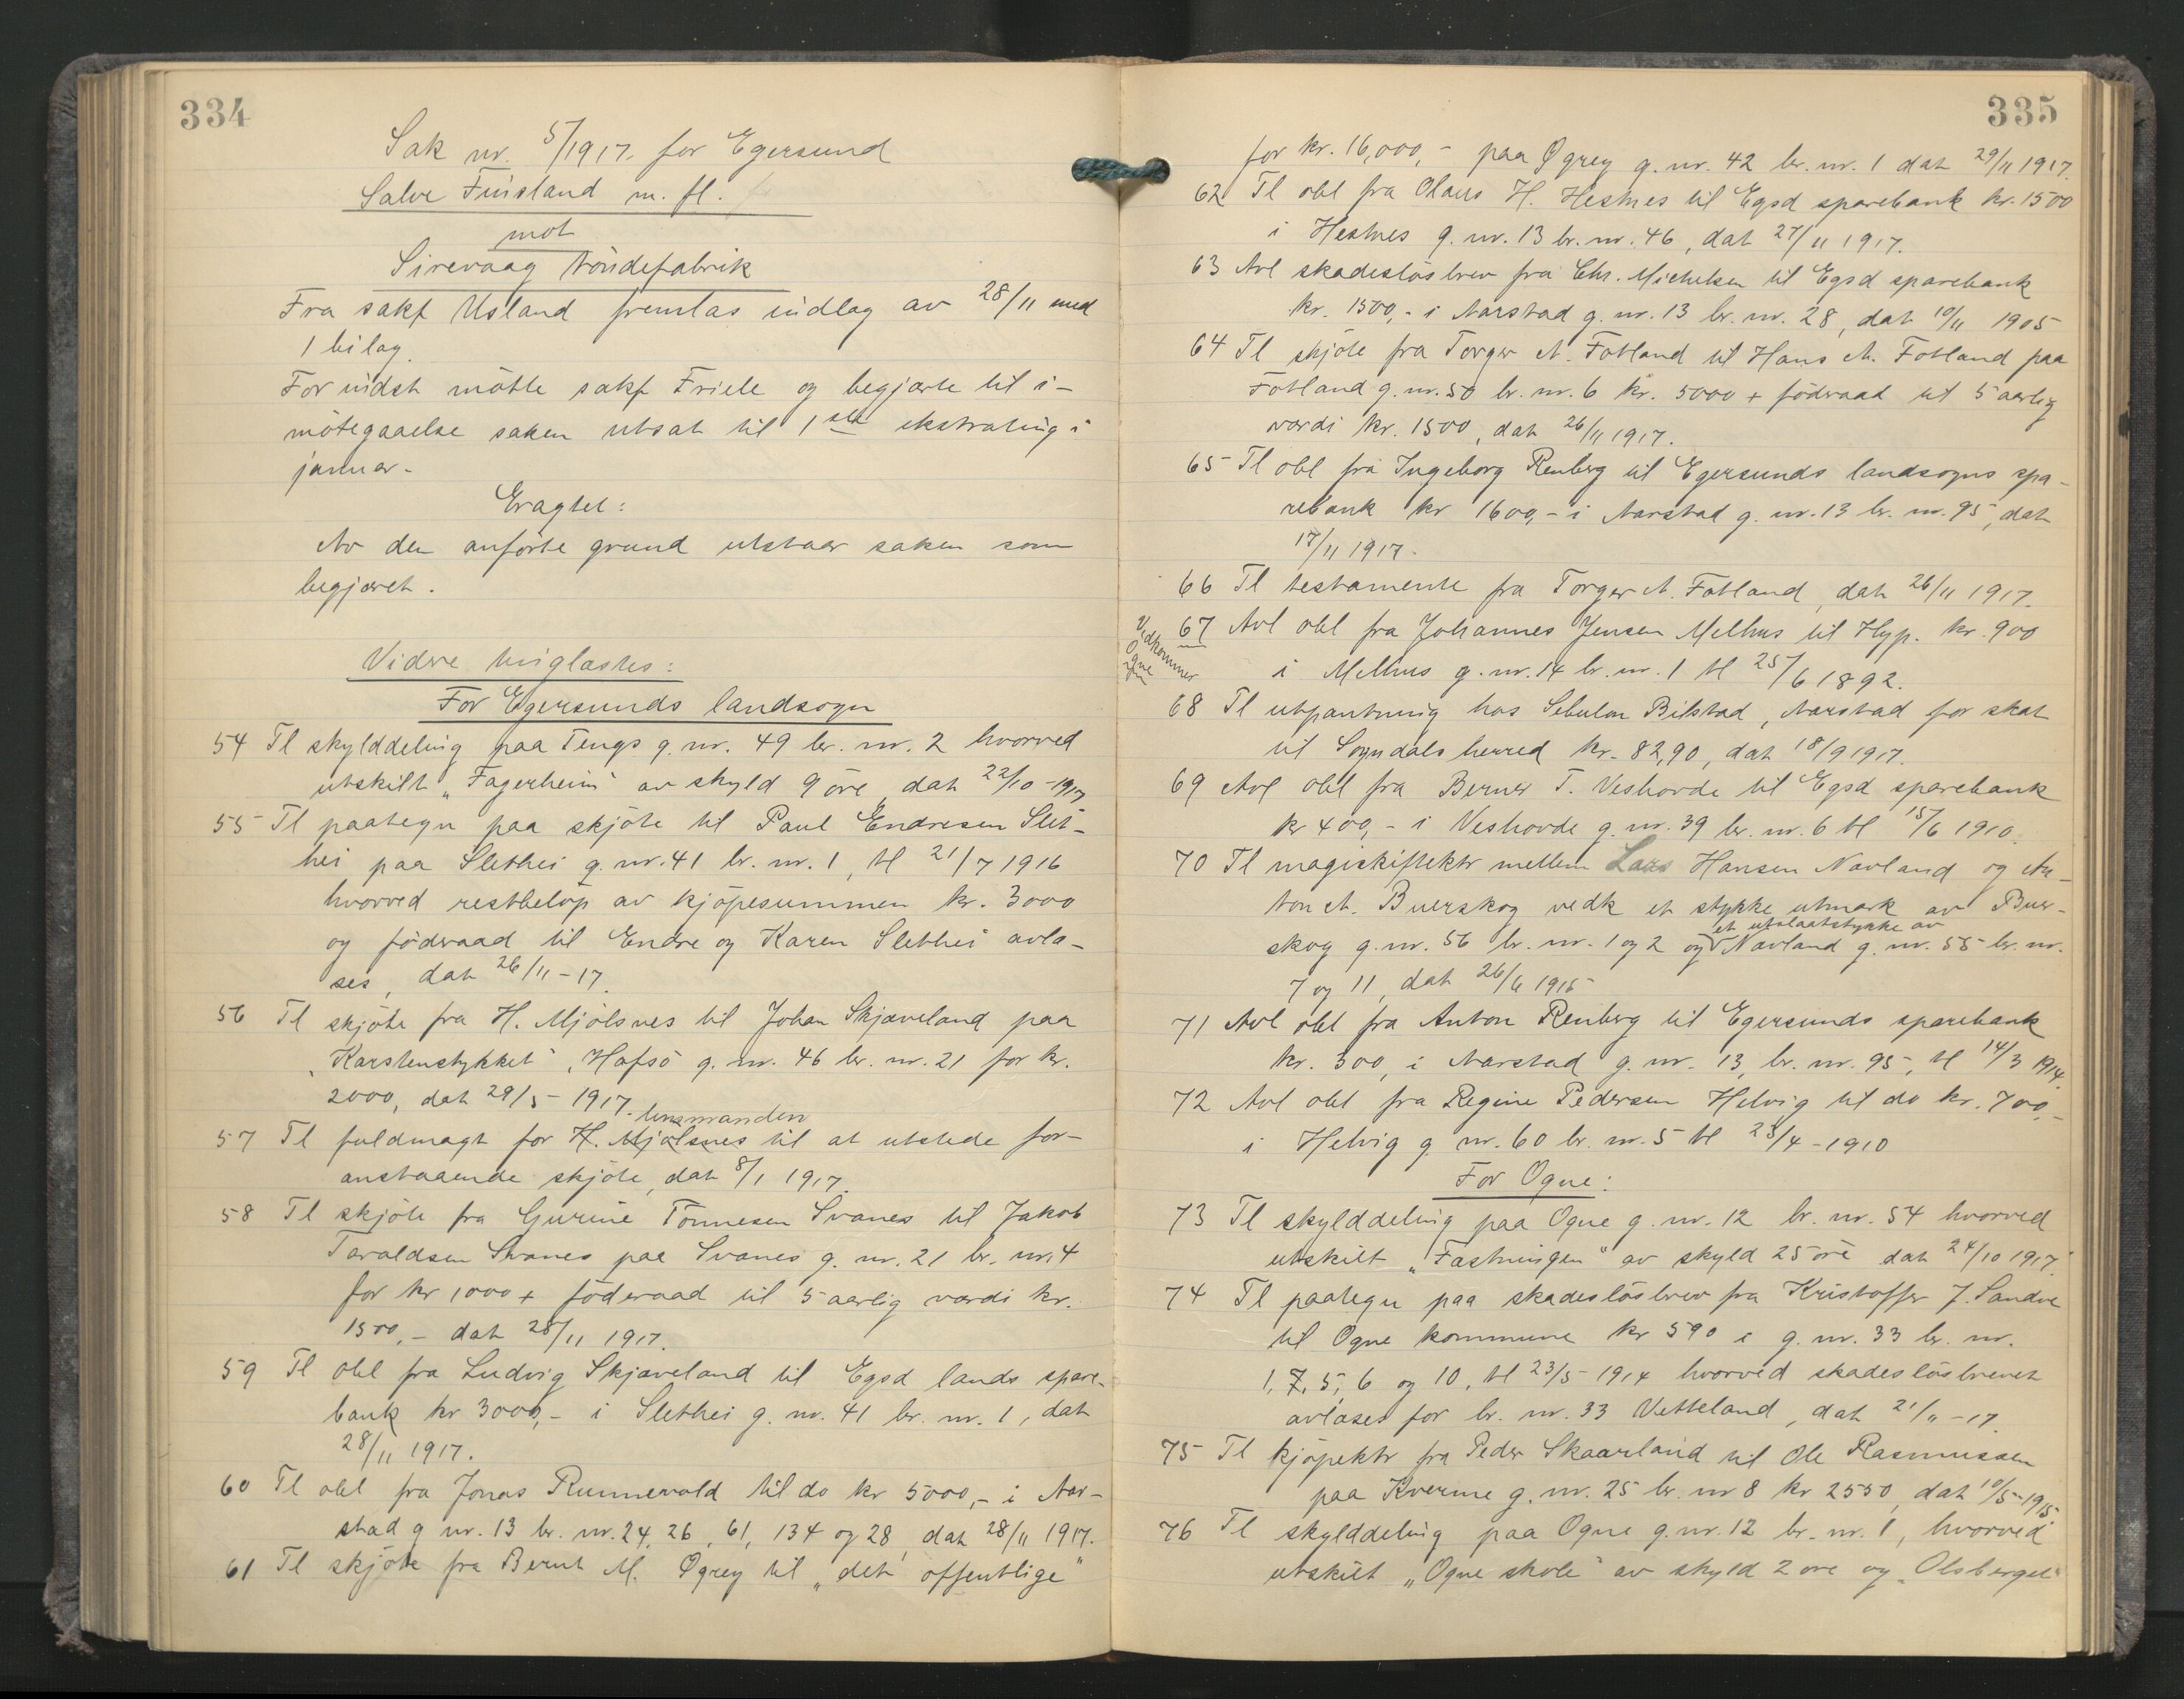 334
Sak nr. 5/1917. for Egersund
Salve Fuisland m. fl.
mot
Sirevaag töndefabrik
Fra sakf Usland fremlas indlag av 28/11 med
1 bilag.
For indst mötte sakf Friele og begjærte til i-
mötegaaelse saken utsat til 1ste ekstrating i
januar.
Eragtet:
Av den anförte grund utstaar saken som
begjæret.
Videre tinglæstes:
For Egersunds landsogn
54 Tl skylddeling paa Tengs g. nr. 49 br. nr. 2 hvorved
utskilt „Fagerheim" av skyld 9 öre, dat 22/10-1917
55 Tl paategn paa skjöte til Paul Endresen Slet-
hei paa Slethei g. nr. 41 br. nr. 1, tl 21/7 1916
hvorved restbelöp av kjöpesummen kr. 3000
og föderaad til Endre og Karen Slethei avlæ-
ses, dat 26/11-17.
56 Tl skjöte fra H. Mjölsnes til Johan Skjæveland paa
„Karstenstykket", Hafsö g. nr. 46 br. nr. 21 for kr.
2000, dat 29/5-1917.
lensmanden
57 Tl fuldmagt for H. Mjölsnes til at utstede for-
anstaaende skjöte, dat 8/1 1917.
58 Tl skjöte fra Gurine Tönnesen Svanes til Jakob
Taraldsen Svanes paa Svanes g. nr. 21 br. nr. 4
for kr 1000 + föderaad til 5 aarlig værdi kr.
1500,- dat 28/11 1917.
59 Tl obl fra Ludvig Skjæveland til Egsd lands spare-
bank kr 3000,- i Slethei g. nr. 41 br. nr. 1, dat
28/11 1917.
60 Tl obl fra Jonas Runnevold til do kr 5000,- i Aar-
stad g nr. 13 br. nr. 24, 26, 61, 134 og 28, dat 28/11 1917.
61 Tl skjöte fra Bernt M. Øgrey til „det offentlige"
335
for kr. 16,000,- paa Øgrey g. nr. 42 br. nr. 1 dat 29/11 1917.
62 Tl obl fra Olaus H. Hestnes til Egsd sparebank kr. 1500
i Hestnes g. nr. 13 br. nr. 46, dat 27/11 1917.
63 Avl skadeslösbrev fra Chr. Michelsen til Egsd sparebank
kr. 1500,- i Aarstad g. nr. 13 br. nr. 28, dat 10/11 1905
64 Tl skjöte fra Torger A. Fotland til Hans A. Fotland paa
Fotland g. nr. 50 br. nr. 6 kr. 5000 + föderaad til 5 aarlig
værdi kr. 1500, dat 26/11 1917.
65 Tl obl fra Ingeborg Renberg til Egersunds landsogns spa-
rebank kr 1600,- i Aarstad g. nr. 13 br. nr. 95, dat
17/11 1917.
66 Tl testamente fra Torger A. Fotland, dat 26/11 1917.
Vedkommer Ogne
67 Avl obl fra Johannes Jensen Melhus til Hyp. kr. 900
i Melhus g. nr. 14 br. nr. 1 tl 25/6 1892.
68 Tl utpantning hos Sebulon Bilstad, Aarstad for skat
til Sogndals herred kr. 82,90, dat 18/9 1917.
69 Avl obl fra Berner T. Veshovde til Egsd sparebank
kr 400,- i Veshovde g. nr. 39 br. nr. 6 tl 15/6 1910.
70 Tl magiskiftektr mellem Lars Hansen Navland og An-
ton A. Buerskog vedk et stykke utmark av Buer-
et utslaatstykke av
skog g. nr. 56 br. nr. 1 og 2 og Navland g. nr. 55 br. nr.
7 og 11, dat 26/6 1915
71 Avl obl fra Anton Renberg til Egersunds sparebank
kr. 300, i Aarstad g. nr. 13, br. nr. 95, tl 14/3 1914.
72 Avl obl fra Regine Pedersen Helvig til do kr. 700,-
i Helvig g nr. 60 br. nr. 5 tl 23/4-1910
For Ogne:
73 Tl skylddeling paa Ogne g. nr. 12 br. nr. 54 hvorved
utskilt „Fæstningen" av skyld 25 öre dat 24/10 1917.
74 Tl paategn paa skadeslösbrev fra Kristoffer J. Sandve
til Ogne kommune kr 590 i g. nr. 33 br. nr.
1, 7, 5, 6 og 10, tl 23/5-1914 hvorved skadeslösbrevet
avlæses for br. nr. 33 Vetteland, dat 21/11-17.
75 Tl kjöpektr fra Peder Skaarland til Ole Rasmussen
paa Kverme g. nr. 25 br. nr 8 kr 2550, dat 10/5-1915.
76 Tl skylddeling paa Ogne g. nr. 12 br. nr. 1, hvorved
utskilt „Ogne skole" av skyld 2 öre og „Olsberget"